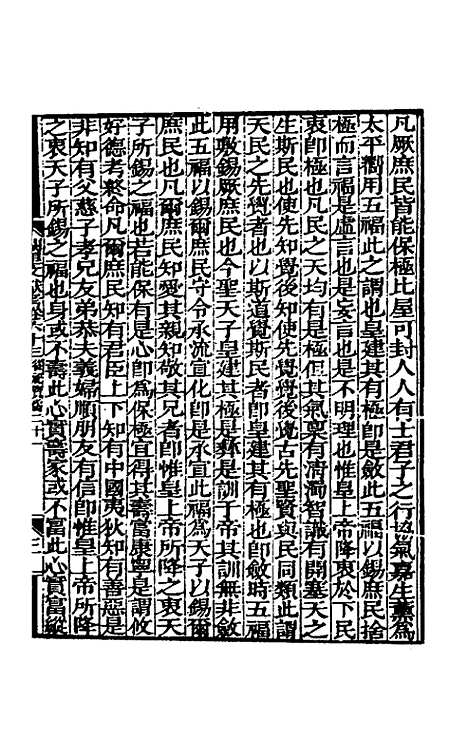 凡厥庶民皆能保極比屋可封人人有士君子之行協氣嘉生薰為
太平嚮用五福此之謂也皇建其有極即是斂此五福以錫庶民捨
極而言福是虛言也是妄言也是不明理也惟皇上帝降衷於下民
衷即極也凡民之生均有是極但其氣稟有清濁智識有開塞天之
生斯民也使先知覺後知使先覺覺後覺古先聖賢與民同類此謂
天民之先覺者也以斯道覺斯民者即皇建其有極也即斂時五福
用敷錫厥庶民也今聖天子皇建其極是彝是訓于帝其訓無非斂
此五福以錫爾庶民守令承流宣化即是承宣此福為天子以錫爾
庶民也凡爾庶民知愛其親知敬其兄者即惟皇上帝所降之衷天
子所錫之福也若能保有是心即為保極宜得其壽富康寧是謂攸
好德考終命凡爾庶民知有君臣上下知有中國夷狄知有善惡是
非知有父慈子孝兄友弟恭夫義婦順朋友有信即惟皇上帝所降
之衷天子所錫之福也身或不壽此心實壽家或不富此心實富縱